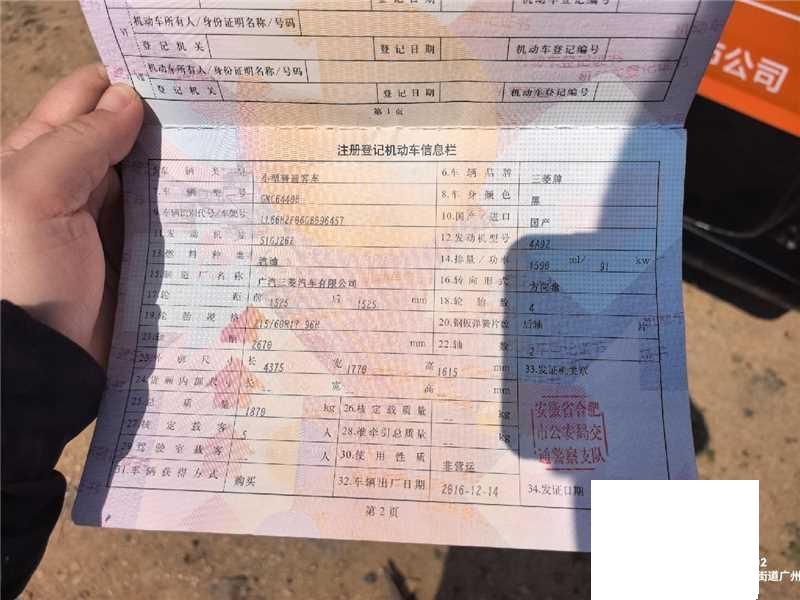 机动车所有人/身份证明名称/号码
登记机关 登记日期 机动车登记编号
机动车所有人/身份证明名称/号码
登记机关 登记日期 机动车登记编号
第1页
市公司
注册登记机动车信息栏
车辆类型 小型普通客车 6.车辆品牌 三菱牌
车辆型号 8.车身颜色 黑
9.车辆识别代号/车架号 10.国产/进口 国产
11.发动机号 12.发动机型号 4A92
13.燃料种类 汽油 14.排量/功率 1590 ml/ 91 kw
15.制造厂名称 广汽三菱汽车有限公司 16.转向形式 方向盘
17.轮距 前 1525 后 1525 mm 18.轮胎数 4
19.轮胎规格 215/60R17 96H 20.钢板弹簧片数 后轴 片
轴距 2670 mm 22.轴数 2
23.外廓尺寸 长 4375 宽 1770 高 1615 mm 33.发证机关章
24.货厢内部尺寸 长 -- 宽 -- 高 -- mm
25.总质量 1870 kg 26.核定载质量 -- kg
27.核定载客 5 人 28.准牵引总质量 -- kg
29.驾驶室载客 人 30.使用性质 非营运
31.车辆获得方式 购买 32.车辆出厂日期 2016-12-14 34.发证日期
安徽省合肥
市公安局交
通警察支队
第2页
街道广州